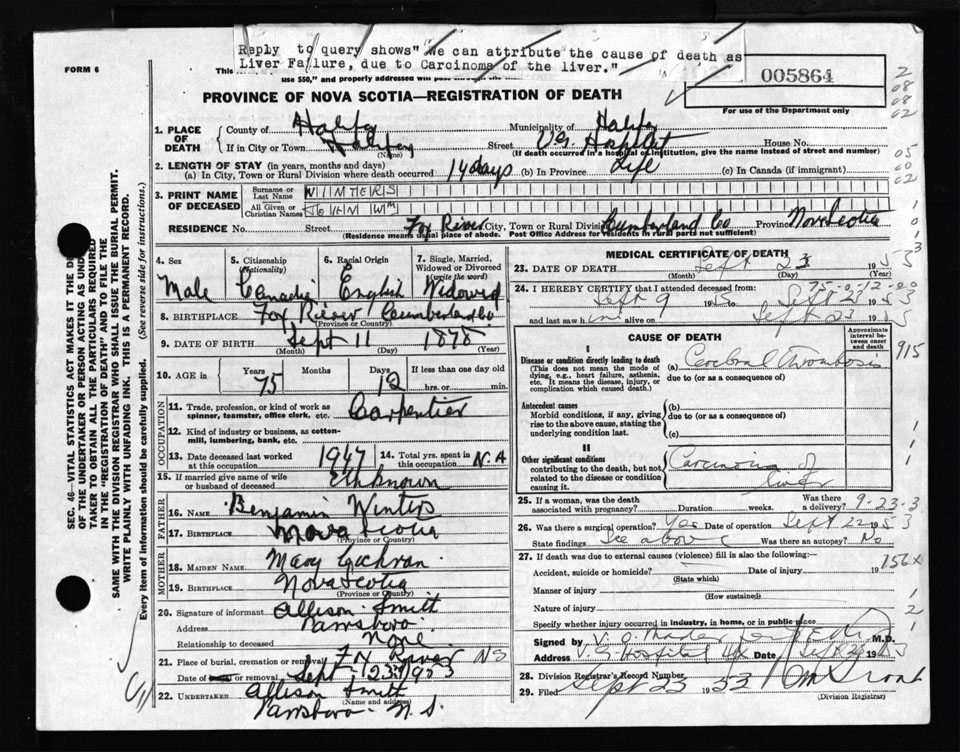 Reply to query shows" We can attribute the cause of death as
Liver Failure, due to Carcinoma of the liver."
FORM 6
use 550," and properly addressed will
005864
PROVINCE OF NOVA SCOTIA—REGISTRATION OF DEATH
For use of the Department only
2
08
08
02
05
00
02
1. PLACE OF DEATH
County of Halifax Municipality of Halifax
If in City or Town Halifax Street V.G. Hospital House No.
(If death occurred in a hospital or institution, give the name instead of street and number)
2. LENGTH OF STAY (in years, months and days)
(a) In City, Town or Rural Division where death occurred 14 days (b) In Province Life (c) In Canada (if immigrant)
3. PRINT NAME OF DECEASED
Surname or Last Name
All Given or Christian Names JOHN WM
RESIDENCE No. Street Fox River City or Town or Rural Division Cumberland Co Province Nova Scotia
(Residence means usual place of abode. Post Office Address for residents in rural parts not sufficient)
4. Sex
5. Citizenship (Nationality)
6. Racial Origin
7. Single, Married, Widowed or Divorced (write the word)
Male Canadian English Widowed
8. BIRTHPLACE Fox River Cumberland Co.
(Province or Country)
9. DATE OF BIRTH Sept 11 1878
(Month) (Day) (Year)
10. AGE in Years 75 Months Days 12 If less than one day old
hrs. or min.
OCCUPATION
11. Trade, profession, or kind of work as spinner, teamster, office clerk, etc. Carpentier
12. Kind of industry or business, as cotton-mill, lumbering, bank, etc.
13. Date deceased last worked at this occupation 1947 14. Total yrs. spent in this occupation N.A
15. If married give name of wife or husband of deceased
FATHER
16. NAME Benjamin Winters
17. BIRTHPLACE Nova Scotia
(Province or Country)
MOTHER
18. MAIDEN NAME Mary Cochran
19. BIRTHPLACE Nova Scotia
(Province or Country)
20. Signature of informant Allison Smith
Address Parrsboro
Relationship to deceased None
21. Place of burial, cremation or removal Fox River NS
Date of or removal Sept 1953
22. UNDERTAKER Allison Smith
(Name and address)
Parrsboro N.S.
MEDICAL CERTIFICATE OF DEATH
23. DATE OF DEATH Sept 23 1953
(Month) (Day) (Year)
75-0-12-00
24. I HEREBY CERTIFY that I attended deceased from:
Sept 9 to Sept 23 1953
and last saw him alive on Sept 23 1953
CAUSE OF DEATH
Approximate interval between onset and death
915
I
Disease or condition directly leading to death
(This does not mean the mode of dying, e.g., heart failure, asthenia, etc. It means the disease, injury, or complication which caused death.)
(a) Cerebral Thrombosis
due to (or as a consequence of)
Antecedent causes
Morbid conditions, if any, giving rise to the above cause, stating the underlying condition last.
(b)
due to (or as a consequence of)
(c)
II
Other significant conditions
contributing to the death, but not related to the disease or condition causing it.
Carcinoma of
liver
25. If a woman, was the death associated with pregnancy? Duration weeks. Was there a delivery?
9-23-3
26. Was there a surgical operation? Yes Date of operation Sept 22 1953
State findings See above Was there an autopsy? No
27. If death was due to external causes (violence) fill in also the following:—
156x
Accident, suicide or homicide? Date of injury 19
(State which)
Manner of injury
(How sustained)
Nature of injury
Specify whether injury occurred in industry, in home, or in public place
Signed by V. O. Mader M.D.
Address V.G. Hospital Hx Date Sept 1953
28. Division Registrar's Record Number
29. Filed Sept 25 1953
(Division Registrar)
SEC. 46—VITAL STATISTICS ACT MAKES IT THE
OF THE UNDERTAKER OR PERSON ACTING AS UNDER-
TAKER TO OBTAIN ALL THE PARTICULARS REQUIRED
IN THE "REGISTRATION OF DEATH" AND TO FILE THE
SAME WITH THE DIVISION REGISTRAR WHO SHALL ISSUE THE BURIAL PERMIT.
WRITE PLAINLY WITH UNFADING INK. THIS IS A PERMANENT RECORD.
Every item of information should be carefully supplied. (See reverse side for instructions.)